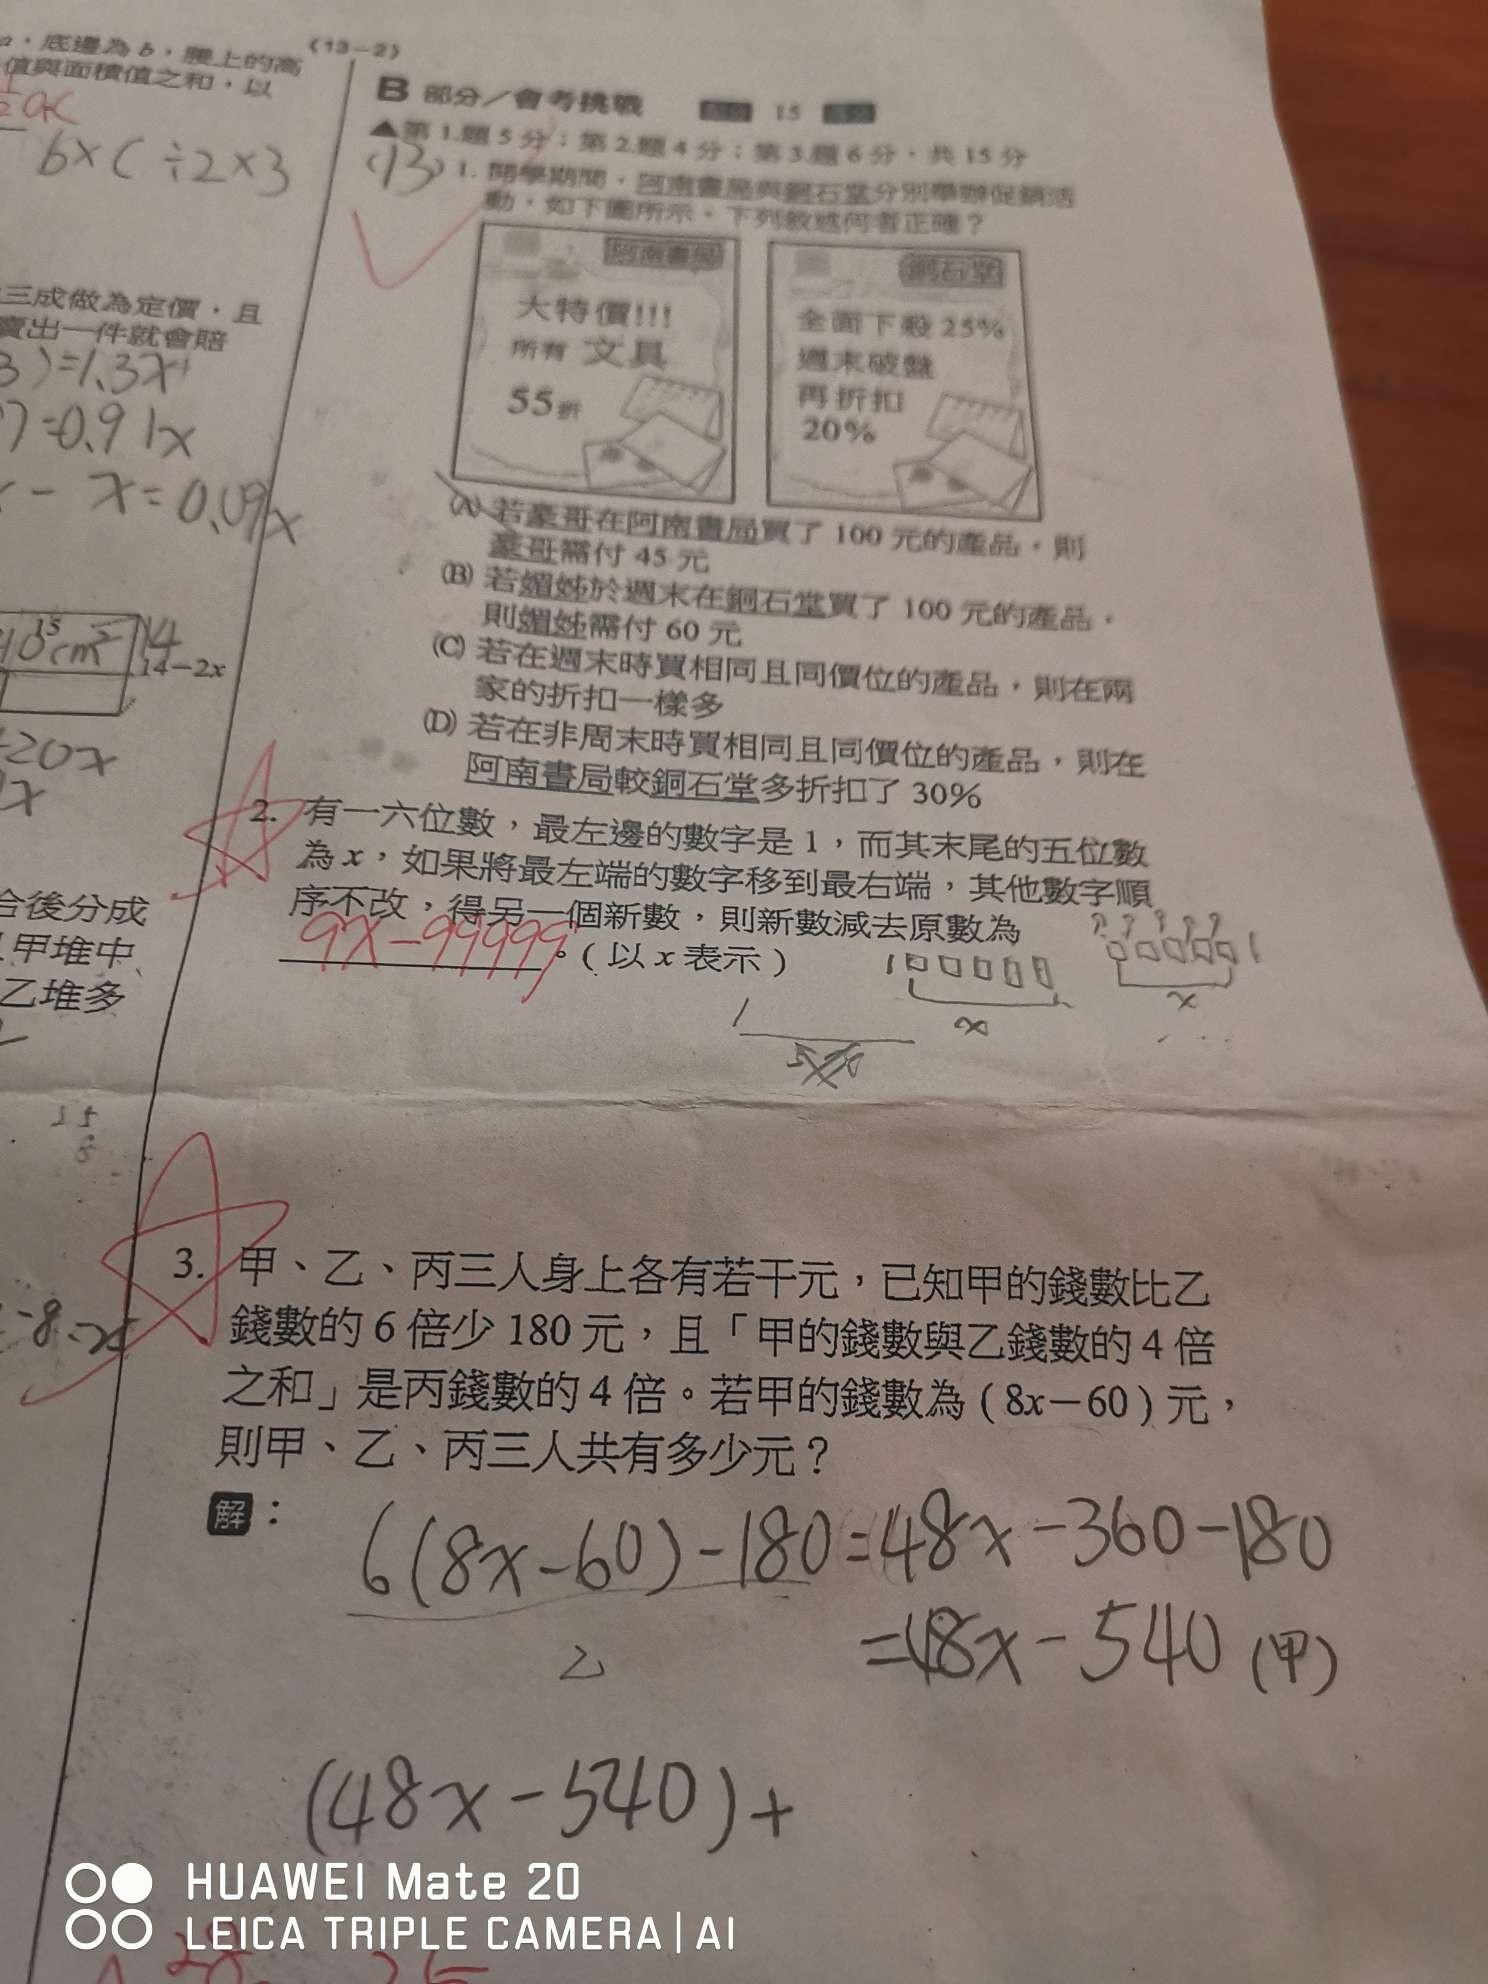 底邊為 b，腰上的高
值與面積值之和，以
6×( ÷2×3
三成做為定價，且
賣出一件就會賠
3)=1.3x
7)=0.91x
- x=0.09x
14
cm²
14-2x
-20x
合後分成
甲堆中
乙堆多
15
8
(13-2)
B 部分／會考挑戰 15
▲第 1.題 5 分；第 2.題 4 分；第 3.題 6 分，共 15 分
(B) 1. 開學期間，阿南書局與銅石堂分別舉辦促銷活
動，如下圖所示。下列敘述何者正確？
阿南書局
大特價!!!
所有 文具
55折
銅石堂
全面下殺 25%
週末破盤
再折扣
20%
(A) 若豪哥在阿南書局買了 100 元的產品，則
豪哥需付 45 元
(B) 若媚姊於週末在銅石堂買了 100 元的產品，
則媚姊需付 60 元
(C) 若在週末時買相同且同價位的產品，則在兩
家的折扣一樣多
(D) 若在非周末時買相同且同價位的產品，則在
阿南書局較銅石堂多折扣了 30%
2. 有一六位數，最左邊的數字是 1，而其末尾的五位數
為 x，如果將最左端的數字移到最右端，其他數字順
序不改，得另一個新數，則新數減去原數為
9x-99999。（以 x 表示）
? ? ? ? ?
1□□□□□ □□□□□1
x x
1
3. 甲、乙、丙三人身上各有若干元，已知甲的錢數比乙
錢數的 6 倍少 180 元，且「甲的錢數與乙錢數的 4 倍
之和」是丙錢數的 4 倍。若甲的錢數為 ( 8x－60 ) 元，
則甲、乙、丙三人共有多少元？
解：
6(8x-60)-180=48x-360-180
乙
=48x-540 (甲)
(48x-540)+
HUAWEI Mate 20
LEICA TRIPLE CAMERA | AI